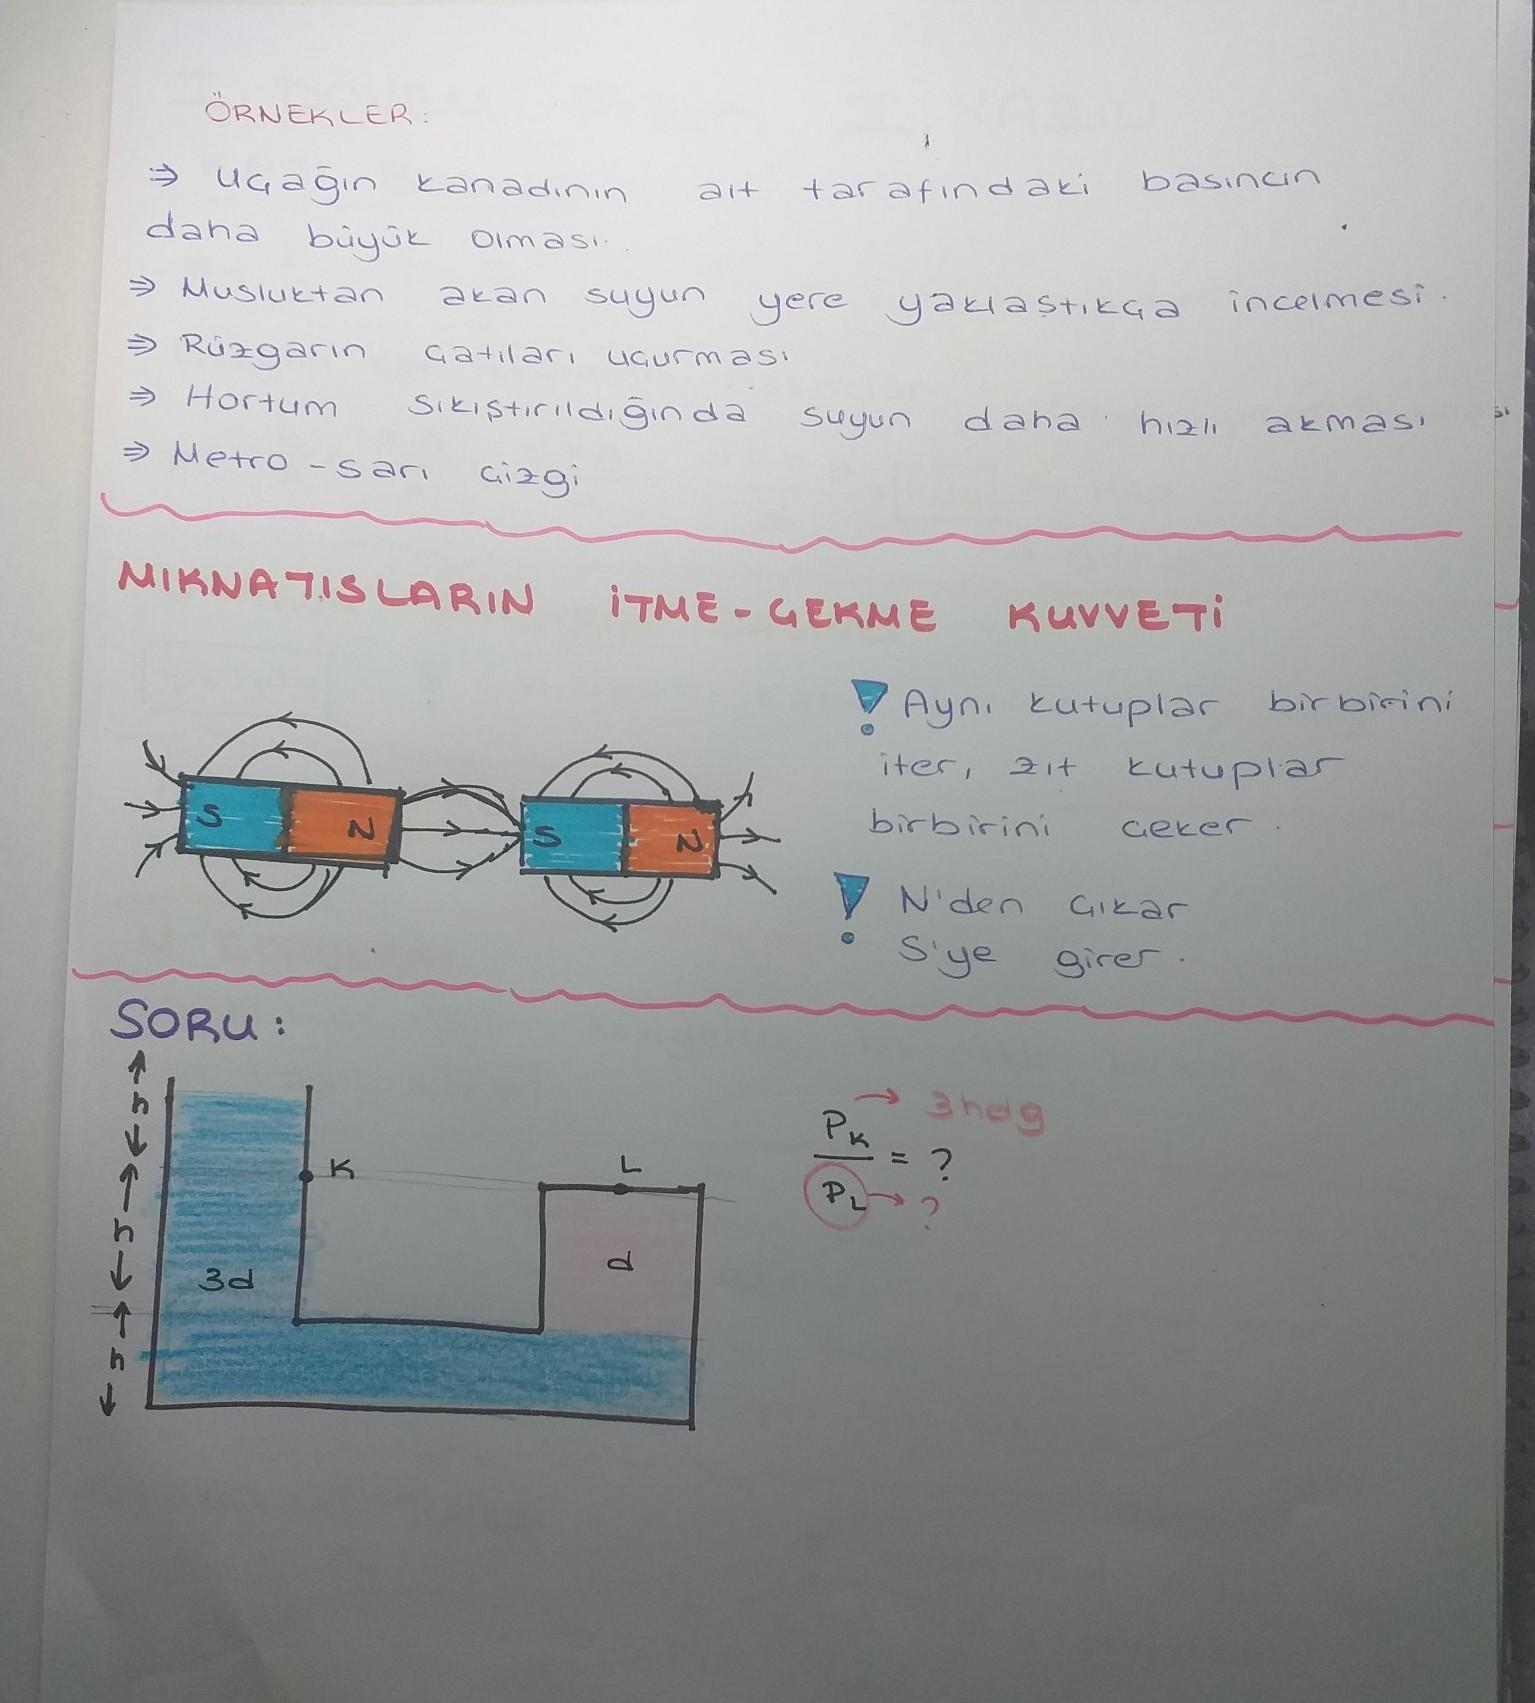 ÖRNEKLER:
⇒ Uçağın kanadının alt tarafındaki basıncın
daha büyük olması.
⇒ Musluktan akan suyun yere yaklaştıkça incelmesi.
⇒ Rüzgarın çatıları uçurması
⇒ Hortum sıkıştırıldığında suyun daha hızlı akması
⇒ Metro - sarı çizgi
MIKNATISLARIN İTME - ÇEKME KUVVETİ
! Aynı kutuplar birbirini
iter, zıt kutuplar
birbirini çeker.
S N S N
! N'den çıkar
S'ye girer.
SORU:
h
h
h
K
L
3d
d
PK → 3hdg
= ?
PL → ?